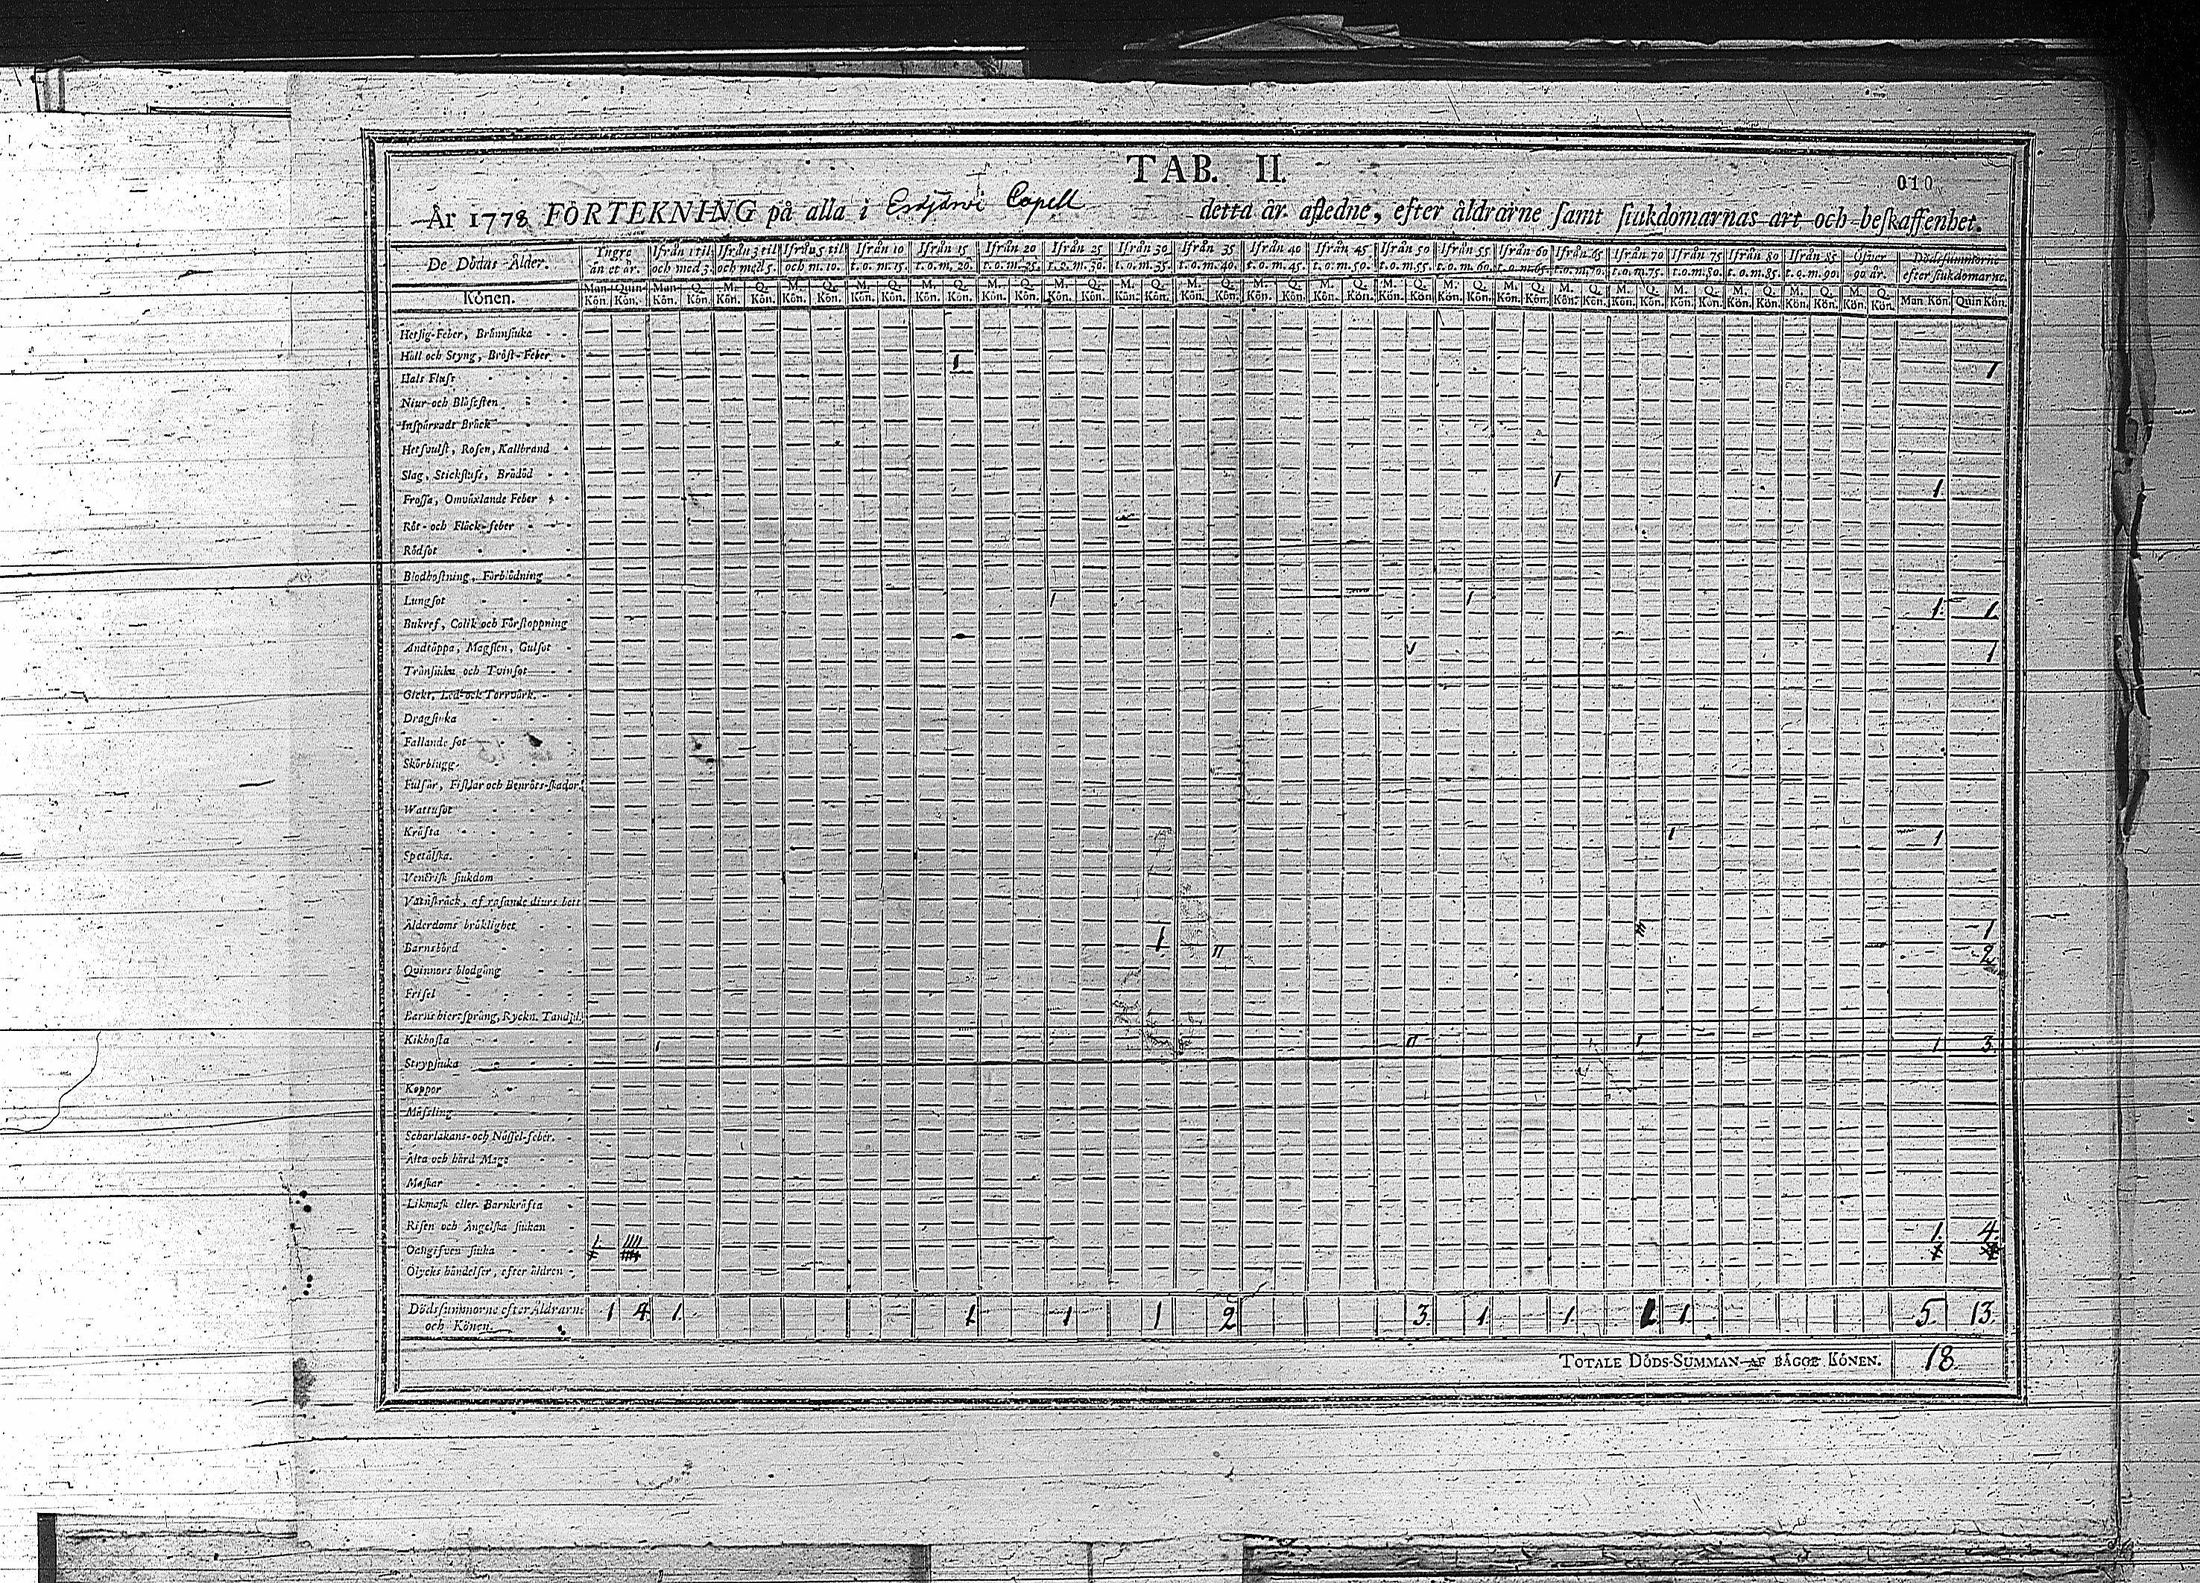 TAB. II.
010
År 1778 FÖRTEKNING på alla i Capell detta år afledne, efter åldrarne samt siukdomarnas art och beskaffenhet.
De Dödas Ålder. Yngre än et år. Ifrån 1 til och med 3. Ifrån 3 til och med 5. Ifrån 5 til och m. 10. Ifrån 10 t. o. m. 15. Ifrån 15 t. o. m. 20. Ifrån 20 t. o. m. 25. Ifrån 25 t. o. m. 30. Ifrån 30 t. o. m. 35. Ifrån 35 t. o. m. 40. Ifrån 40 t. o. m. 45. Ifrån 45 t. o. m. 50. Ifrån 50 t. o. m. 55. Ifrån 55 t. o. m. 60. Ifrån 60 t. o. m. 65. Ifrån 65 t. o. m. 70. Ifrån 70 t. o. m. 75. Ifrån 75 t. o. m. 80. Ifrån 80 t. o. m. 85. Ifrån 85 t. o. m. 90. Öfver 90 år. Dödssummorne efter siukdomarne.
Könen. Man Kön. Quin Kön. Man Kön. Q. Kön. M. Kön. Q. Kön. M. Kön. Q. Kön. M. Kön. Q. Kön. M. Kön. Q. Kön. M. Kön. Q. Kön. M. Kön. Q. Kön. M. Kön. Q. Kön. M. Kön. Q. Kön. M. Kön. Q. Kön. M. Kön. Q. Kön. M. Kön. Q. Kön. M. Kön. Q. Kön. M. Kön. Q. Kön. M. Kön. Q. Kön. M. Kön. Q. Kön. M. Kön. Q. Kön. M. Kön. Q. Kön. M. Kön. Q. Kön. M. Kön. Q. Kön. Man Kön. Quin Kön.
Hetsig-Feber, Brännsiuka
Håll och Styng, Bröst-Feber 1 1
Hals Fluss
Niur och Blåsesten
Inspärradt Bråck
Hetsvulst, Rosen, Kallbrand
Slag, Stickfluss, Brådöd 1 1
Frossa, Omväxlande Feber
Röt- och Fläck-feber
Rödsot
Blodhostning, Förblödning
Lungsot 1 1 1 1
Bukref, Colik och Förstoppning
Andtäppa, Magsten, Gulsot 1 1
Trånsiuka och Tvinsot
Gickt, Led- och Torrvärk.
Dragsiuka
Fallande sot
Skörbiugg
Fulsår, Fistlar och Benröts-skador
Wattusot
Kräfta 1 1
Spetälska.
Venerisk siukdom
Vatnskräck, af rasande diurs bett
Ålderdoms bräklighet 1
Barnsbörd 1 11 2
Qvinnors blodgång
Frisel
Barns hiertsprång, Ryckn. Tandpl.
Kikhosta 1 11 1 1 3.
Strypsiuka
Koppor
Mässling
Scharlakans- och Nässel-feber.
Älta och hård Mage
Maskar
Likmask eller Barnkräfta
Risen och Ängelska siukan
Oangifven siuka 1 1111 1. 4.
Olycks händelser, efter äldren
Dödssummorne efter Åldrarne 1 4. 1. 1. 1 1 2 3. 1. 1. 1. 5. 13.
och Könen.
TOTALE DÖDS-SUMMAN AF BÄGGE KÖNEN. 18.